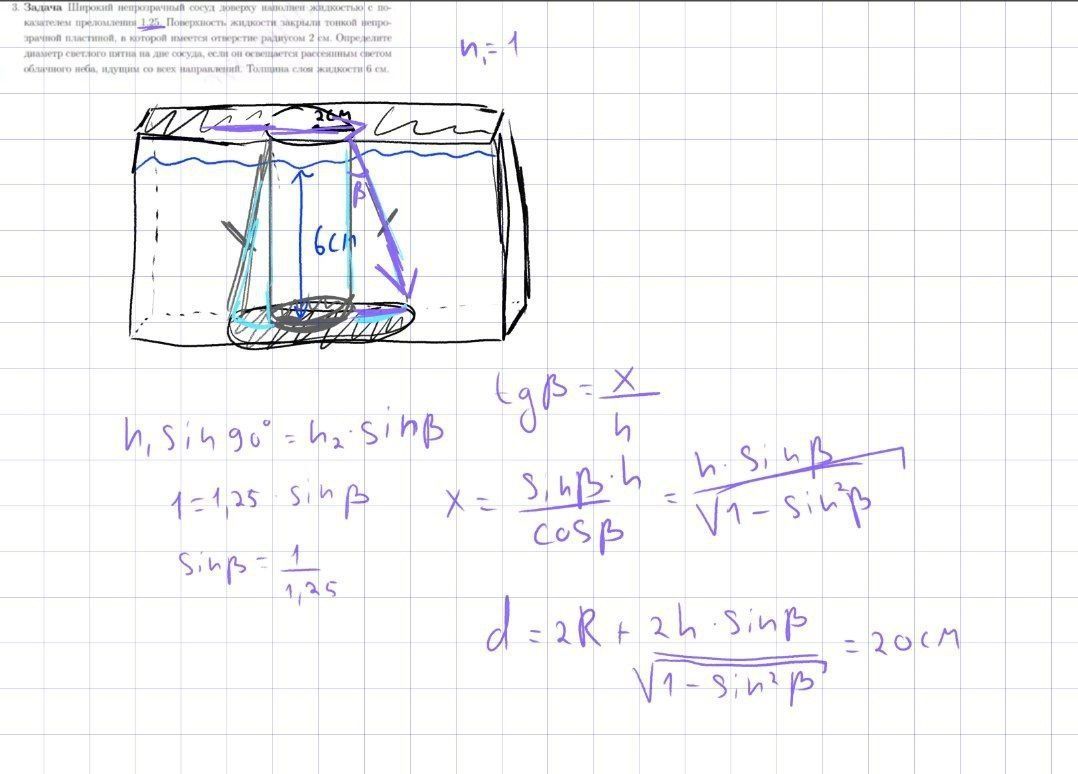 3. Задача Широкий непрозрачный сосуд доверху наполнен жидкостью с по-
казателем преломления 1,25. Поверхность жидкости закрыли тонкой непро-
зрачной пластиной, в которой имеется отверстие радиусом 2 см. Определите
диаметр светлого пятна на дне сосуда, если он освещается рассеянным светом
облачного неба, идущим со всех направлений. Толщина слоя жидкости 6 см.
n₁=1
2см
β
6см
tgβ = x/h
n₁ sin90° = n₂ · sinβ
1=1,25 · sinβ
x = sinβ·h/cosβ = h·sinβ/√1-sin²β
sinβ = 1/1,25
d = 2R + 2h·sinβ/√1-sin²β = 20см